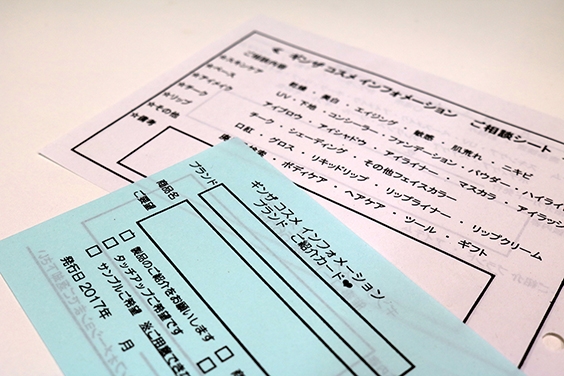 ギンザ コスメ インフォメーション ご相談シート
ご相談内容
☆スキンケア 乾燥 ・ 美白 ・ エイジング ・ 敏感 ・ 肌荒れ ・ ニキビ
☆ベース UV ・ 下地 ・ コンシーラー ・ ファンデーション ・ パウダー ・ ハイライ
☆アイメイク アイブロウ ・ アイシャドウ ・ アイライナー ・ マスカラ ・ アイラッシ
☆チーク チーク ・ シェーディング ・ その他フェイスカラー
☆リップ 口紅 ・ グロス ・ リキッドリップ ・ リップライナー ・ リップクリーム
☆その他 ボディケア ・ ヘアケア ・ ツール ・ ギフト
ギンザ コスメ インフォメーション
ブランド ご紹介カード♥
ブランド
商品名
ご要望
□ 製品のご紹介をお願いします
□ タッチアップご希望です
□ サンプルご希望 ※ご用意できな
発行日 2017年 月